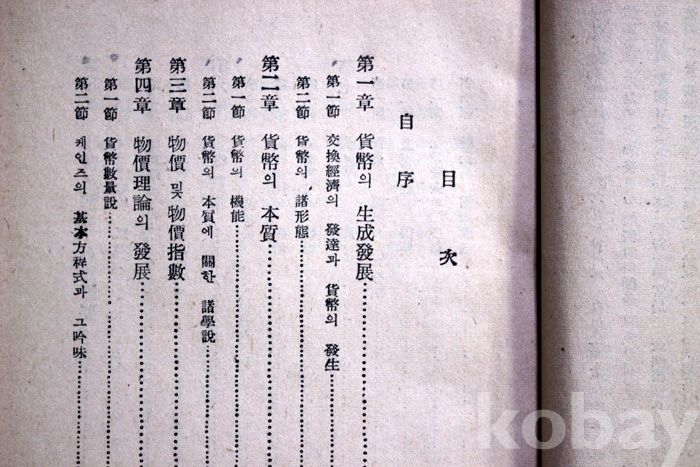 目次
自序
第一章 貨幣의 生成發展
第一節 交換經濟의 發達과 貨幣의 發生
第二節 貨幣의 諸形態
第二章 貨幣의 本質
第一節 貨幣의 機能
第二節 貨幣의 本質에 關한 諸學說
第三章 物價 및 物價指數
第四章 物價理論의 發展
第一節 貨幣數量說
第二節 케인즈의 基本方程式과 그 吟味
kobay